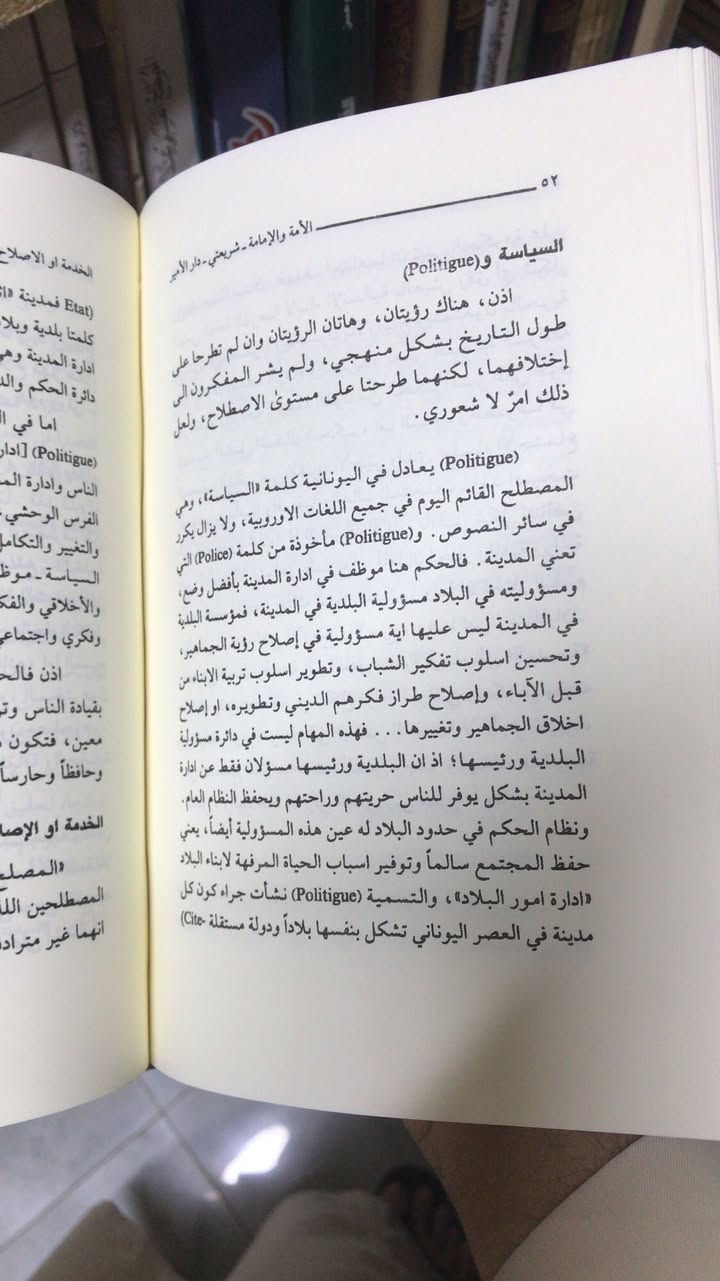 ٥٢
الأمة والإمامة - شريعتي - دار الأمير
السياسة و(Politigue)
اذن، هناك رؤيتان، وهاتان الرؤيتان وان لم تطرحا على
طول التاريخ بشكل منهجي، ولم يشر المفكرون الى
إختلافهما، لكنهما طرحتا على مستوىٰ الاصطلاح، ولعل
ذلك امرٌ لا شعوري.
(Politigue) يعادل في اليونانية كلمة «السياسة»، وهي
المصطلح القائم اليوم في جميع اللغات الاوروبية، ولا يزال يكرر
في سائر النصوص. و(Politigue) مأخوذة من كلمة (Police) التي
تعني المدينة. فالحكم هنا موظف في ادارة المدينة بأفضل وضع،
ومسؤوليته في البلاد مسؤولية البلدية في المدينة، فمؤسسة البلدية
في المدينة ليس عليها اية مسؤولية في إصلاح رؤية الجماهير،
وتحسين اسلوب تفكير الشباب، وتطوير اسلوب تربية الابناء من
قبل الآباء، وإصلاح طراز فكرهم الديني وتطويره، او إصلاح
اخلاق الجماهير وتغييرها... فهذه المهام ليست في دائرة مسؤولية
البلدية ورئيسها؛ اذ ان البلدية ورئيسها مسؤلان فقط عن ادارة
المدينة بشكل يوفر للناس حريتهم وراحتهم ويحفظ النظام العام.
ونظام الحكم في حدود البلاد له عين هذه المسؤولية أيضاً، يعني
حفظ المجتمع سالماً وتوفير اسباب الحياة المرفهة لابناء البلاد
«ادارة امور البلاد»، والتسمية (Politigue) نشأت جراء كون كل
مدينة في العصر اليوناني تشكل بنفسها بلاداً ودولة مستقلة (Cite-
الخدمة او الاصلاح
Etat) فمدينة
كلمتا بلدية وبلا
ادارة المدينة وهي
دائرة الحكم والد
اما في ال
(Politigue) [ادار
الناس وادارة الم
الفرس الوحشي.
والتغيير والتكامل
السياسة - موظ
والأخلاقي والفك
وفكري واجتماعي
اذن فالح
بقيادة الناس وتر
معين، فتكون
وحافظاً وحارساً
الخدمة او الإصلا
«المصلح
المصطلحين الل
انهما غير متراد